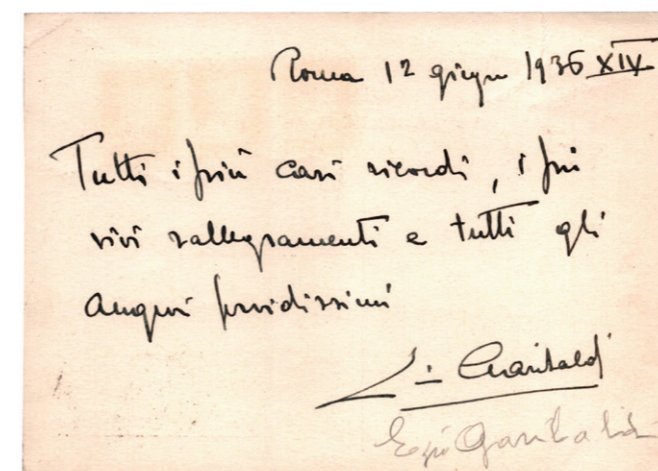 Roma 12 giugno 1936 XIV
Tutti i più cari ricordi, i più
vivi rallegramenti e tutti gli
auguri fervidissimi
Garibaldi
Ezio Garibaldi